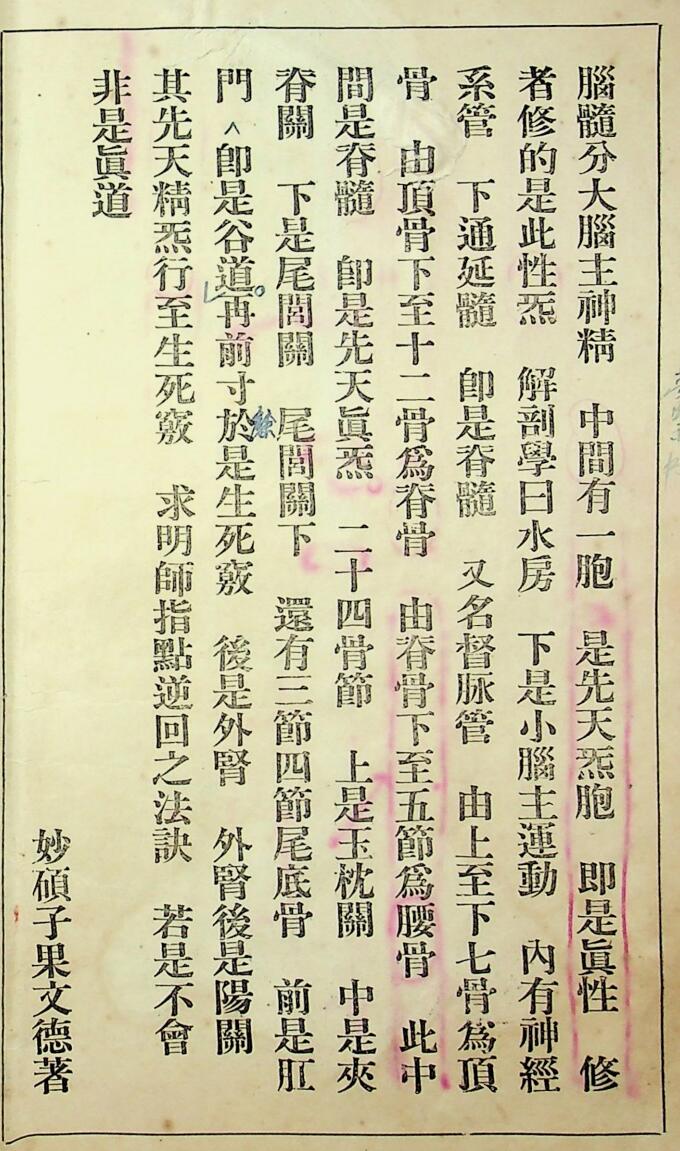 腦髓分大腦主神精　中間有一胞　是先天炁胞　即是眞性　修
者修的是此性炁　解剖學曰水房　下是小腦主運動　內有神經
系管　下通延髓　卽是脊髓　又名督脉管　由上至下七骨爲頂
骨　由頂骨下至十二骨爲脊骨　由脊骨下至五節爲腰骨　此中
間是脊髓　卽是先天眞炁　二十四骨節　上是玉枕關　中是夾
脊關　下是尾閭關　尾閭關下　還有三節四節尾底骨　前是肛
門　卽是谷道。再前寸於是生死竅　後是外腎　外腎後是陽關
餘
其先天精炁行至生死竅　求明師指點逆回之法訣　若是不會
非是眞道
妙碩子果文德著